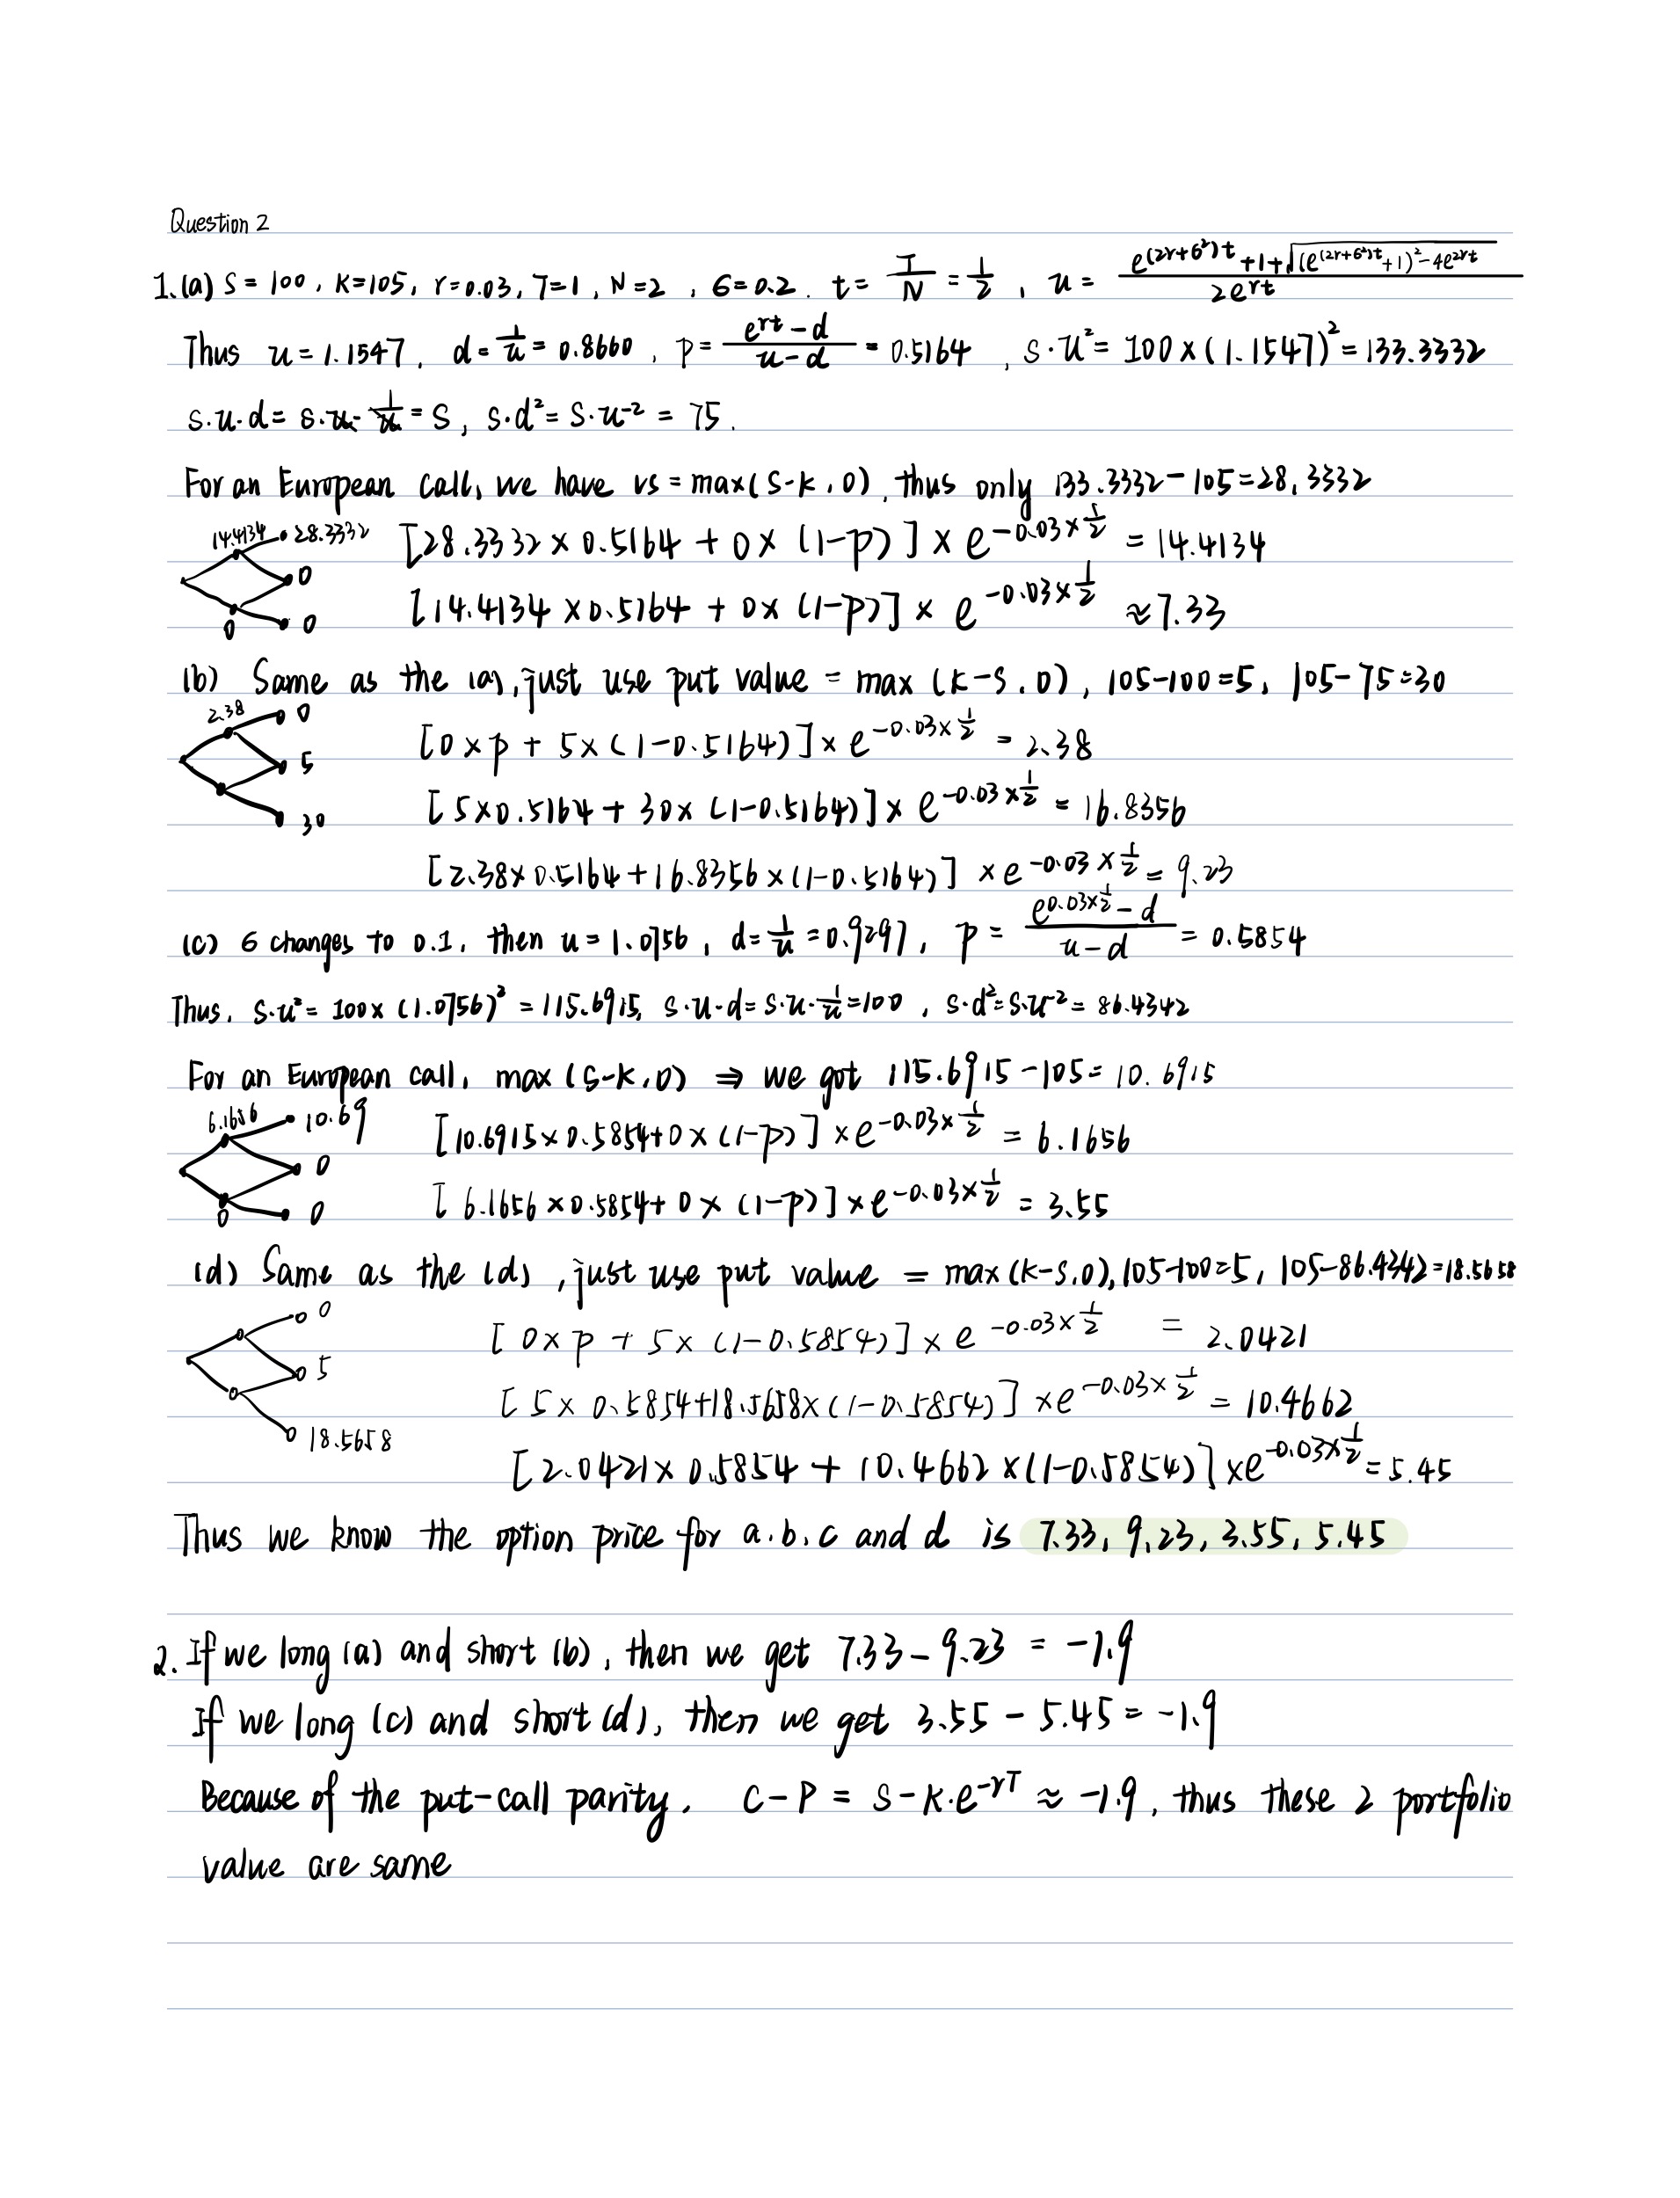 Question 2
1. (a) S = 100, K=105, r=0.03, T=1, N=2, 6=0.2. t = T/N = 1/2, u = (e^((2r+6²)t) + 1 + √((e^((2r+6²)t) + 1)² - 4e^(2rt))) / (2e^(rt))
Thus u = 1.1547, d = 1/u = 0.8660, p = (e^(rt) - d)/(u - d) = 0.5164, s·u² = 100 × (1.1547)² = 133.3332
s·u·d = s·u·1/u = S, s·d² = S·u^(-2) = 75.
For an European call, we have vs = max(S-K, 0), thus only 133.3332-105=28.3332
14.4134 28.3332 [28.3332 × 0.5164 + 0 × (1-p)] × e^(-0.03×1/2) = 14.4134
0
0 0 [14.4134 × 0.5164 + 0× (1-p)] × e^(-0.03×1/2) ≈ 7.33
(b) Same as the (a), just use put value = max (K-S, 0), 105-100=5, 105-75=30
2.38 0 [0 × p + 5× (1-0.5164)] × e^(-0.03×1/2) = 2.38
5
30 [5×0.5164 + 30× (1-0.5164)] × e^(-0.03×1/2) = 16.8356
[2.38×0.5164+16.8356×(1-0.5164)] × e^(-0.03×1/2) = 9.23
(c) 6 changes to 0.1, then u = 1.0756, d = 1/u = 0.9297, p = (e^(0.03×1/2) - d)/(u - d) = 0.5854
Thus, s·u² = 100× (1.0756)² = 115.6915, s·u·d = s·u·1/u = 100, s·d² = S·u^(-2) = 86.4342
For an European call, max (S-K, 0) ⇒ we got 115.6915-105= 10.6915
6.1656 10.69 [10.6915×0.5854+0 × (1-p)] × e^(-0.03×1/2) = 6.1656
0
0 0 [6.1656 ×0.5854+ 0 × (1-p)] × e^(-0.03×1/2) = 3.55
(d) Same as the (d), just use put value = max(K-S,0), 105-100=5, 105-86.4342=18.5658
0 [0 × p + 5× (1-0.5854)] × e^(-0.03×1/2) = 2.0421
5
[5× 0.5854+18.5658×(1-0.5854)] × e^(-0.03×1/2) = 10.4662
18.5658
[2.0421× 0.5854 + 10.4662 ×(1-0.5854)] × e^(-0.03×1/2) = 5.45
Thus we know the option price for a.b.c and d is 7.33, 9.23, 3.55, 5.45
2. If we long (a) and short (b), then we get 7.33 - 9.23 = -1.9
If we long (c) and short (d), then we get 3.55 - 5.45 = -1.9
Because of the put-call parity, C-P = S-K·e^(-rT) ≈ -1.9, thus these 2 portfolio
value are same